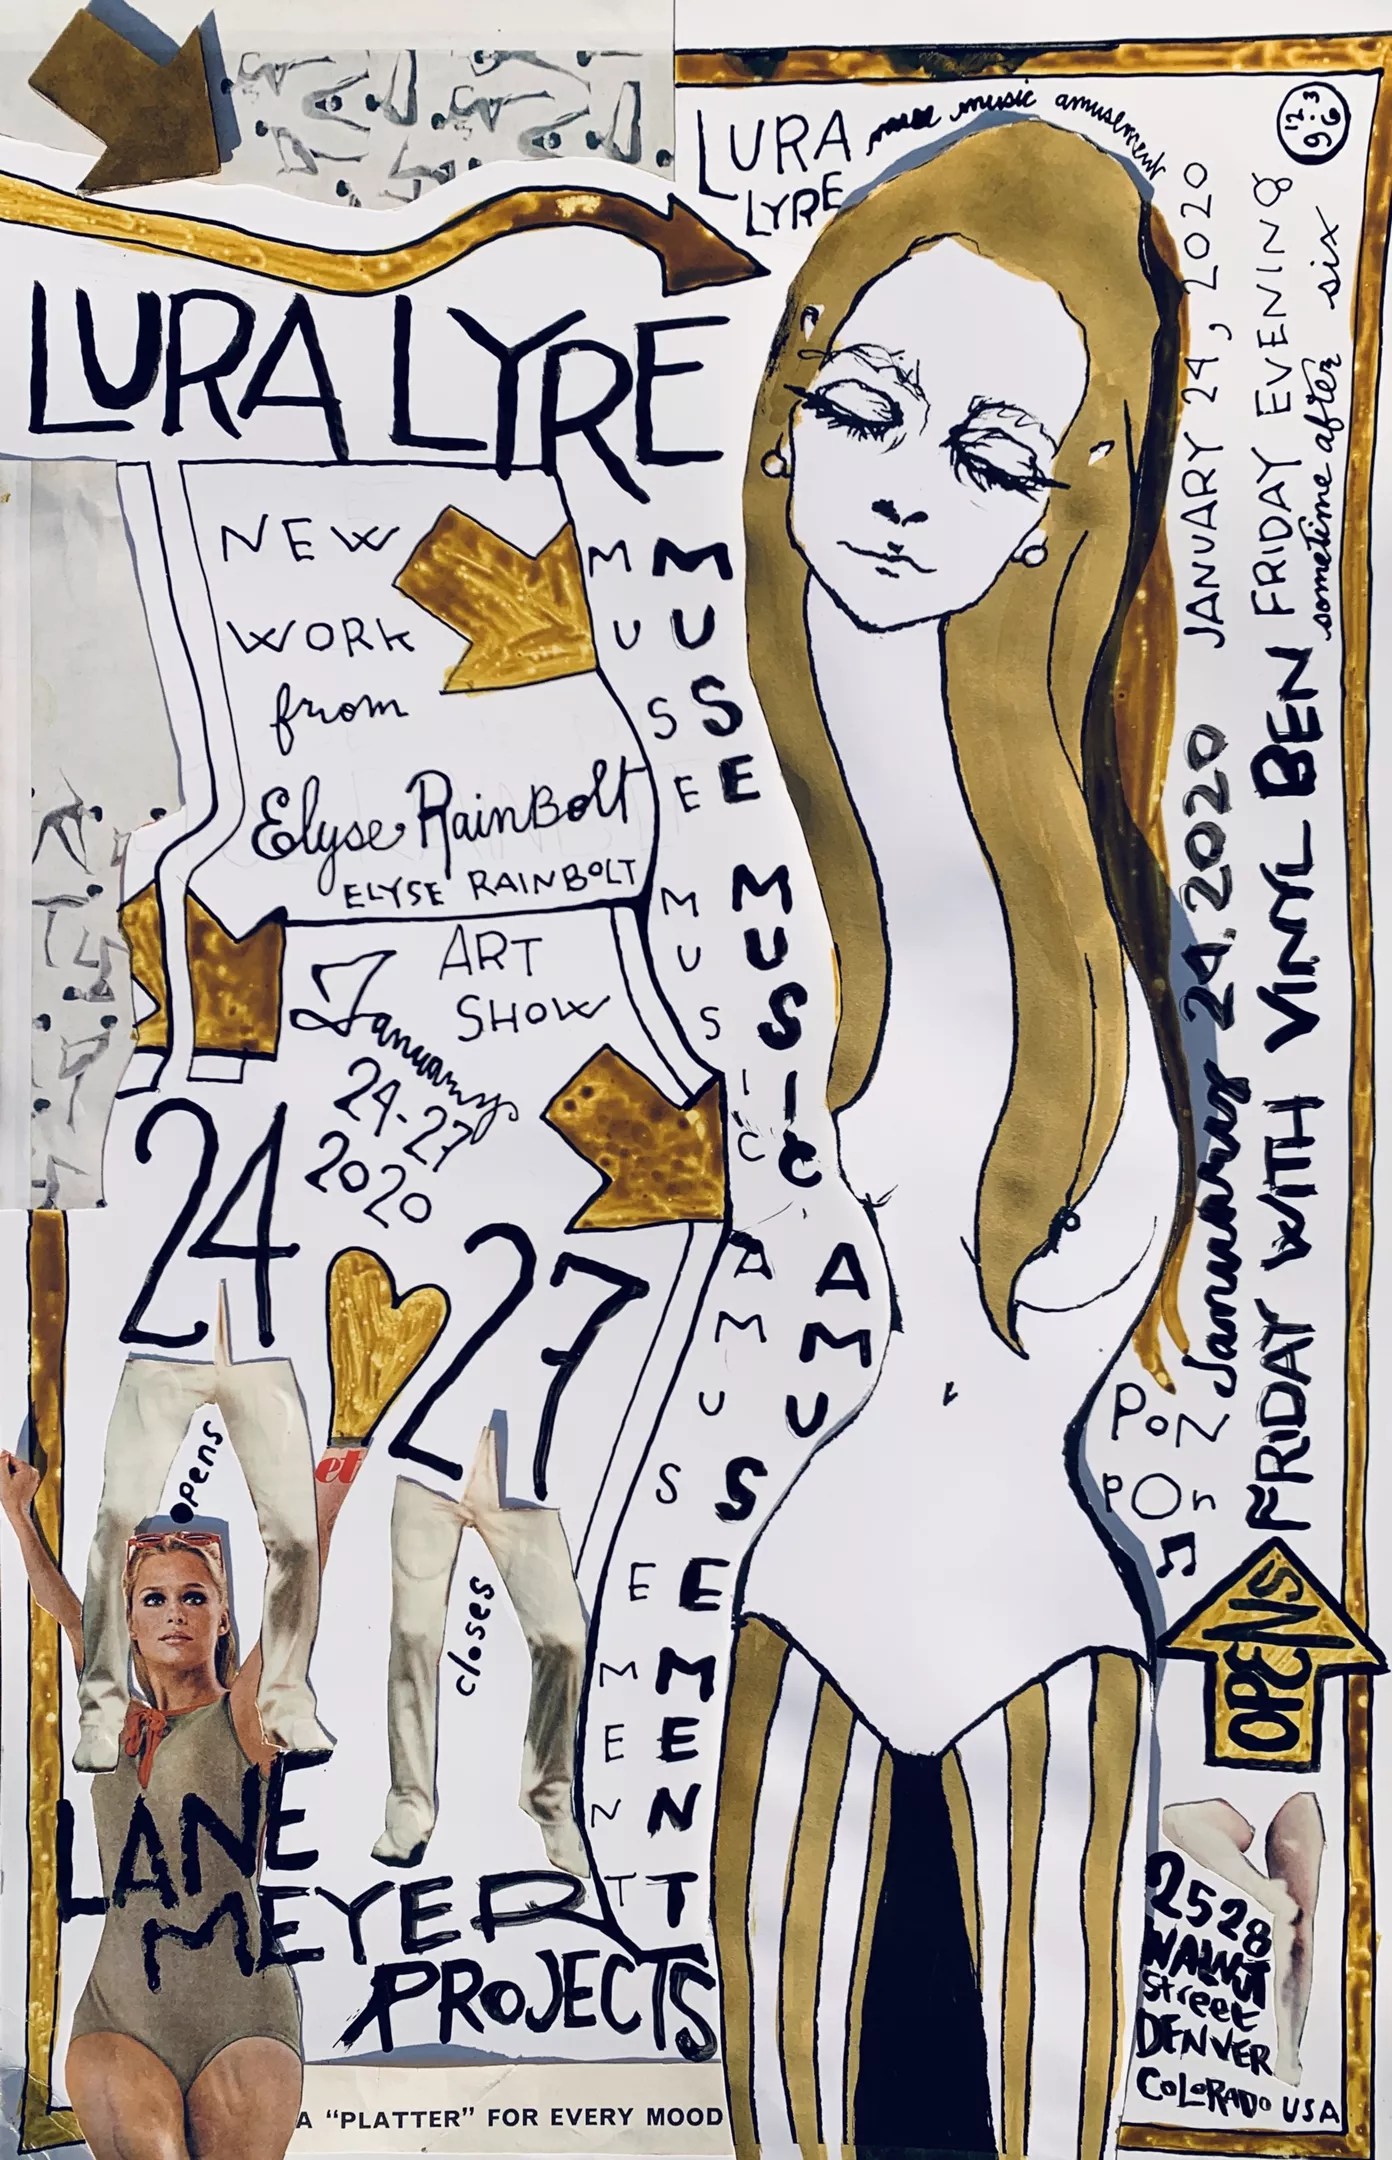 LURA LYRE
muse music amusement
12 3 6 9
LURA LYRE
NEW
WORK
from
Elyse RainBolt
ELYSE RAINBOLT
ART
SHOW
January
24-27
2020
24
27
opens
closes
et
MUSE
MUSIC
AMUSEMENT
MUSE
MUSIC
AMUSEMENT
LANE
MEYER
PROJECTS
A “PLATTER” FOR EVERY MOOD
January 24, 2020 JANUARY 24, 2020
FRIDAY WITH VINYL BEN FRIDAY EVENING
sometime after six
POZ
POn
OPENS
2528
WALNUT
Street
DENVER
COLORADO USA